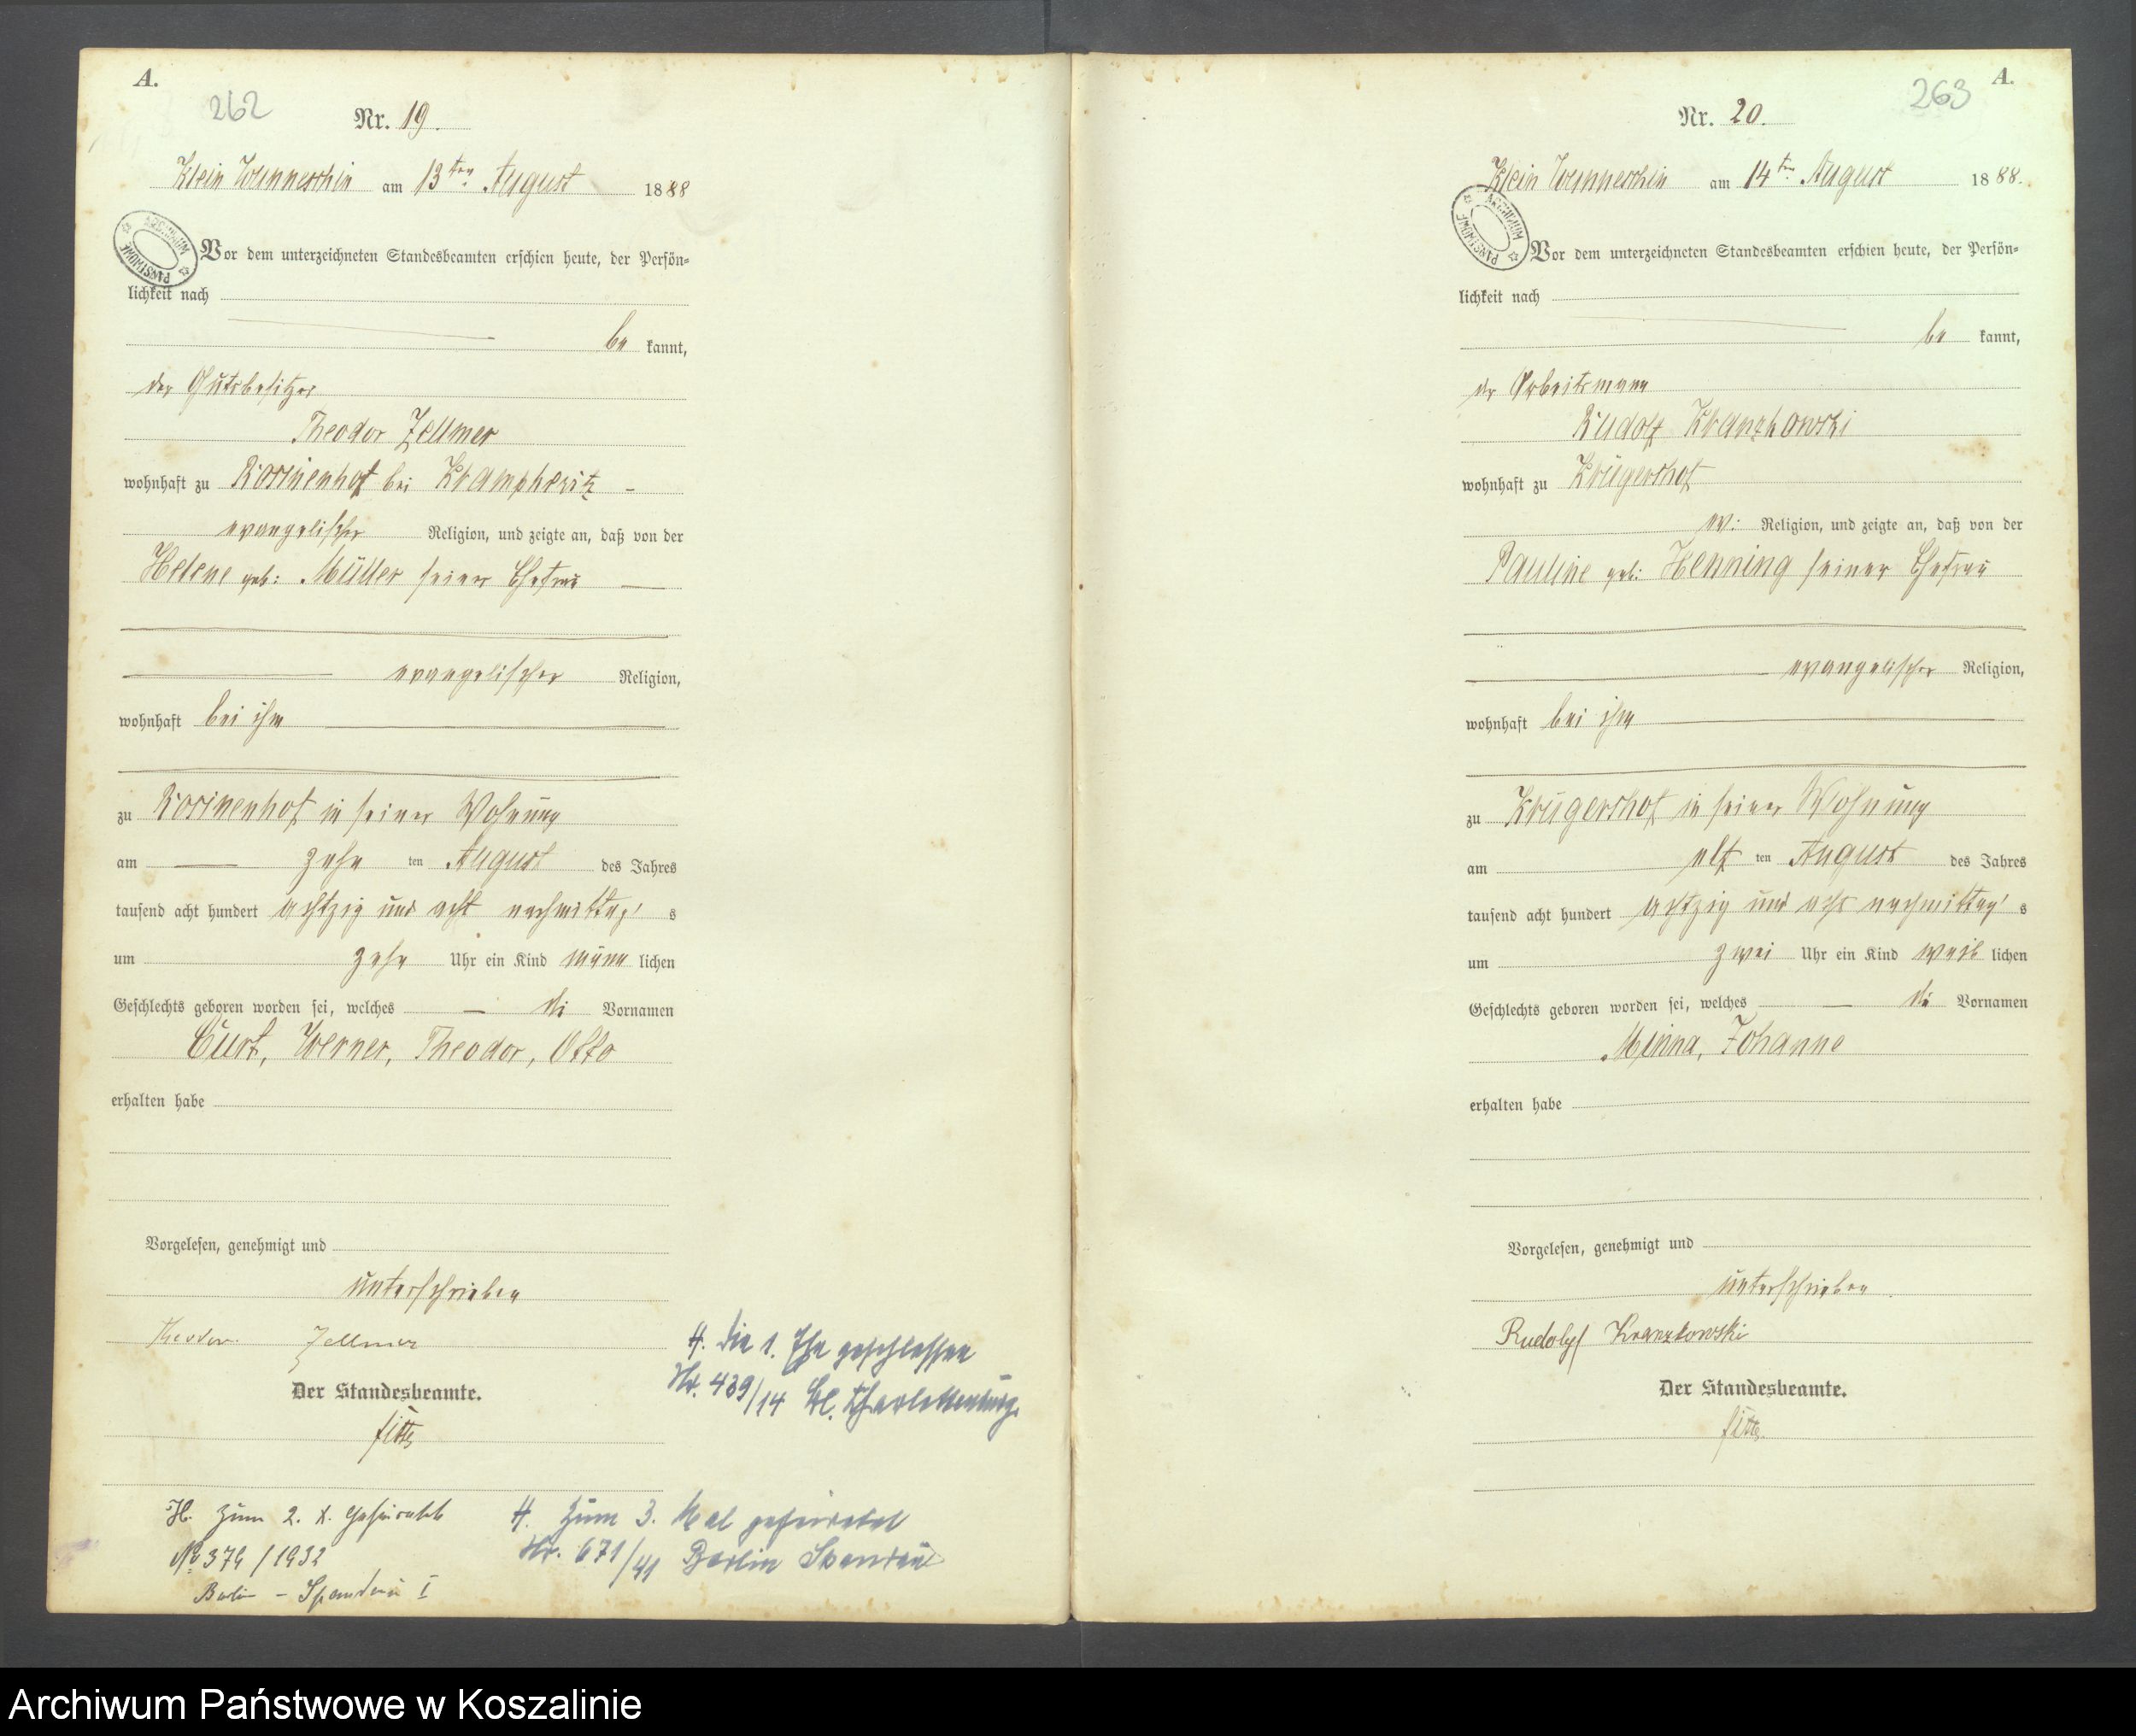 A.
262
Nr. 19.
Klein Wunneschin am 13ten August 1888
ARCHIWUM PAŃSTWOWE
Vor dem unterzeichneten Standesbeamten erschien heute, der Persön-
lichkeit nach
be kannt,
der Gutsbesitzer
Theodor Zellmer
wohnhaft zu Rosinenhof bei Krampkewitz -
evangelischer Religion, und zeigte an, daß von der
Helene geb: Müller seiner Ehefrau
evangelischer Religion,
wohnhaft bei ihm
zu Rosinenhof in seiner Wohnung
am zehn ten August des Jahres
tausend acht hundert achtzig und acht nachmittag's
um zehn Uhr ein Kind männ lichen
Geschlechts geboren worden sei, welches die Vornamen
Curt, Werner, Theodor, Otto
erhalten habe
Vorgelesen, genehmigt und
unterschrieben
Theodor Zellmer
Der Standesbeamte.
H. die 1. Ehe geschlossen
Nr. 439/14 Bl. Charlottenburg.
H. zum 2. x. geheiratet
No 374/1932
Berlin - Spandau I
H. zum 3. Mal geheiratet
Nr. 671/41 Berlin Spandau
A.
263
Nr. 20.
Klein Wunneschin am 14ten August 1888.
ARCHIWUM PAŃSTWOWE
Vor dem unterzeichneten Standesbeamten erschien heute, der Persön-
lichkeit nach
be kannt,
der Arbeitsmann
Rudolf Kranzkowski
wohnhaft zu Krügershof
ev: Religion, und zeigte an, daß von der
Pauline geb: Henning seiner Ehefrau
evangelischer Religion,
wohnhaft bei ihm
zu Krügershof in seiner Wohnung
am elf ten August des Jahres
tausend acht hundert achtzig und acht nachmittag's
um zwei Uhr ein Kind weib lichen
Geschlechts geboren worden sei, welches die Vornamen
Minna, Johanne
erhalten habe
Vorgelesen, genehmigt und
unterschrieben.
Rudolf Kranzkowski
Der Standesbeamte.
Archiwum Państwowe w Koszalinie